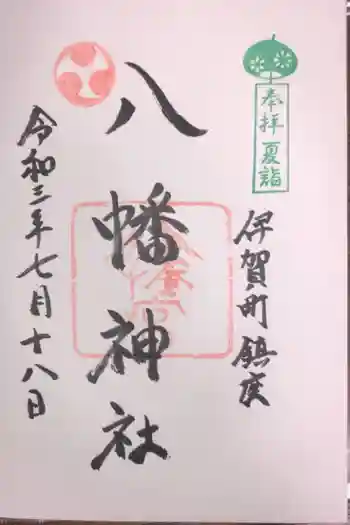 奉拝 夏詣
伊賀町鎮座
八幡神社
令和三年七月十八日